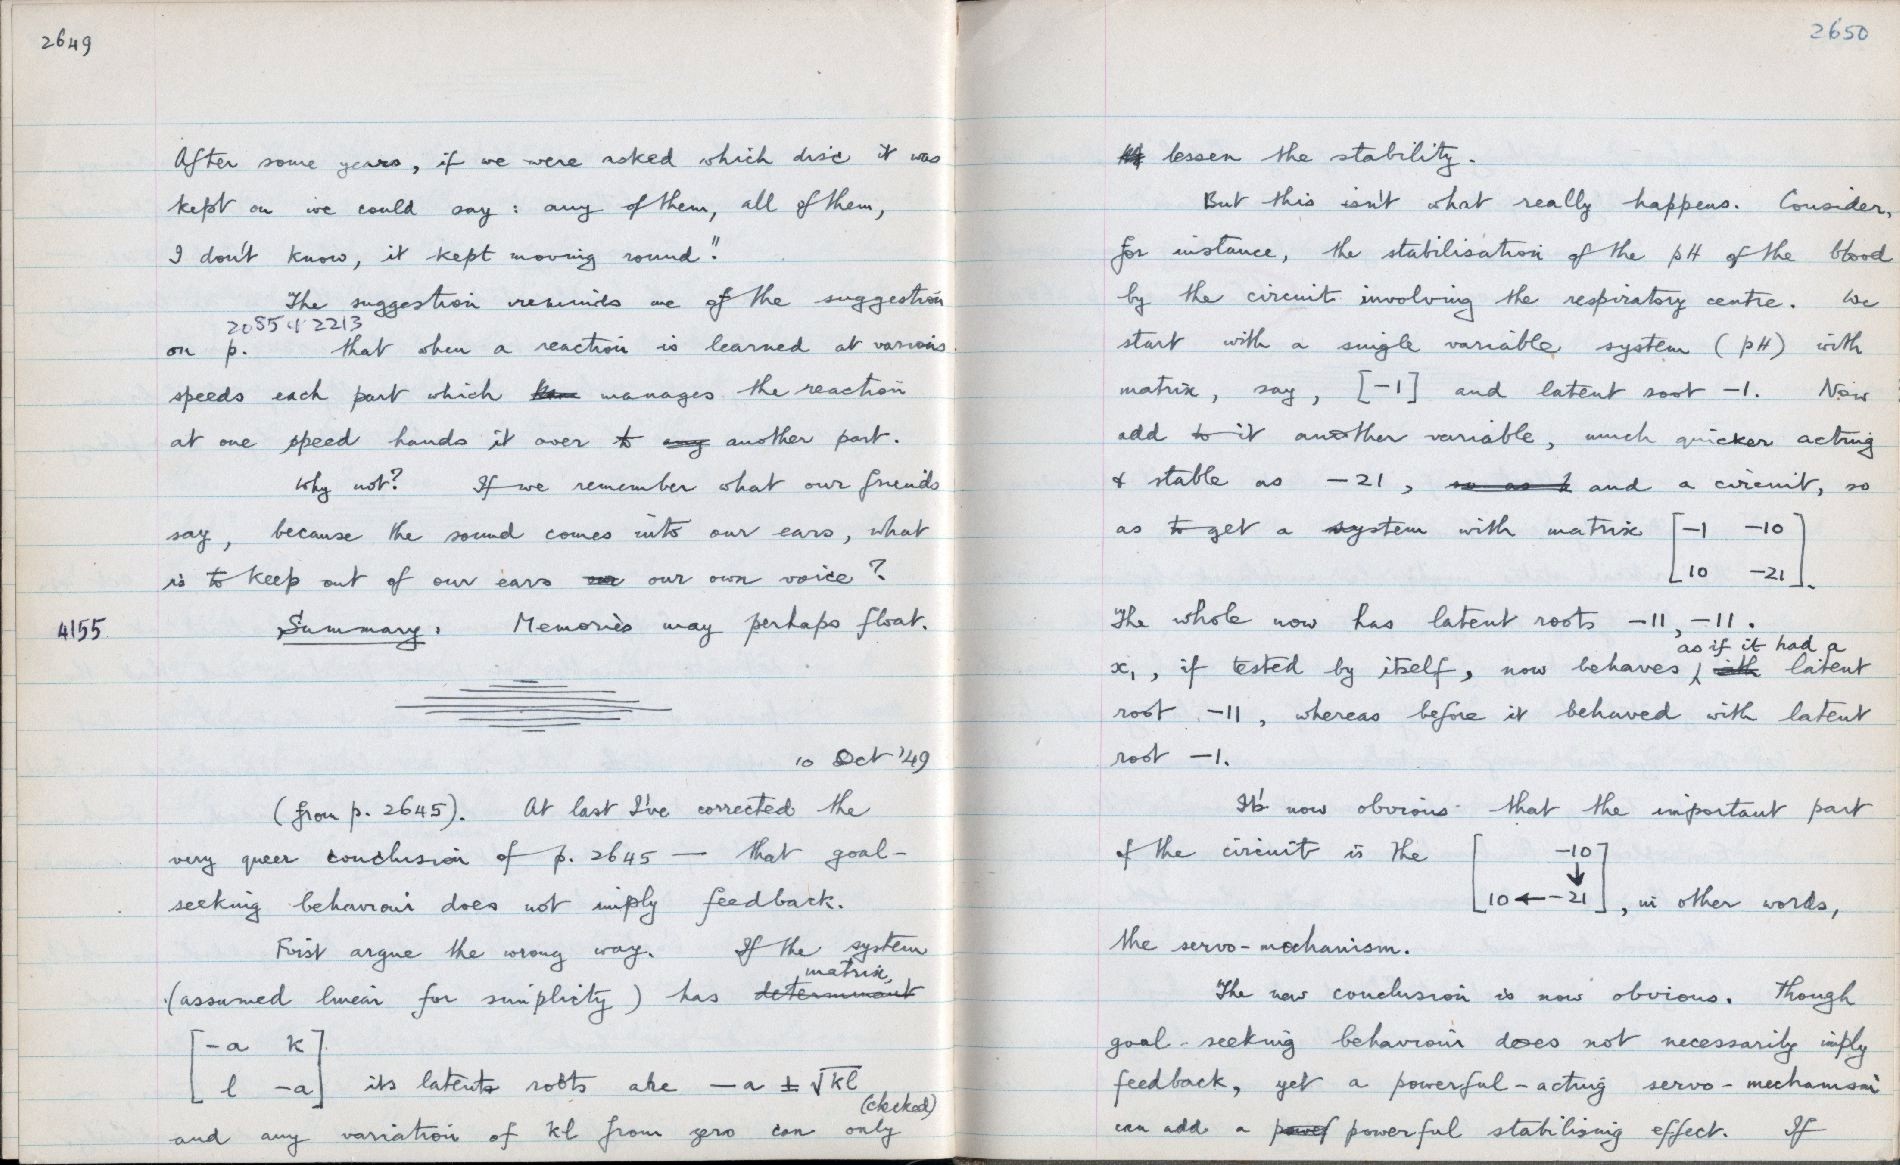 2649
After some years, if we were asked which disc it was
kept on we could say: any of them, all of them,
I don't know, it kept moving round".
The suggestion reminds me of the suggestion
2085 & 2213
on p. that when a reaction is learned at various
speeds each part which manages the reaction
at one speed hands it over to any another part.
Why not? If we remember what our friends
say, because the sound comes into our ears, what
is to keep out of our ears our own voice?
4155 Summary. Memories may perhaps float.
10 Oct '49
(from p. 2645). At last I've corrected the
very queer conclusion of p. 2645 — that goal-
seeking behaviour does not imply feedback.
First argue the wrong way. If the system
matrix,
(assumed linear for simplicity) has determinant
[-a k]
[l -a] its latent roots are -a ± √kl
(checked)
and any variation of kl from zero can only
2650
lessen the stability.
But this isn't what really happens. Consider,
for instance, the stabilisation of the pH of the blood
by the circuit involving the respiratory centre. We
start with a single variable system (pH) with
matrix, say, [-1] and latent root -1. Now
add to it another variable, much quicker acting
& stable as -21, so as t and a circuit, so
as to get a system with matrix [-1 -10]
[10 -21].
The whole now has latent roots -11, -11.
as if it had a
x₁, if tested by itself, now behaves with latent
root -11, whereas before it behaved with latent
root -1.
It's now obvious that the important part
of the circuit is the [ -10]
↓
[10 ← -21], in other words,
the servo-mechanism.
The new conclusion is now obvious. Though
goal-seeking behaviour does not necessarily imply
feedback, yet a powerful-acting servo-mechanism
can add a powef powerful stabilising effect. If